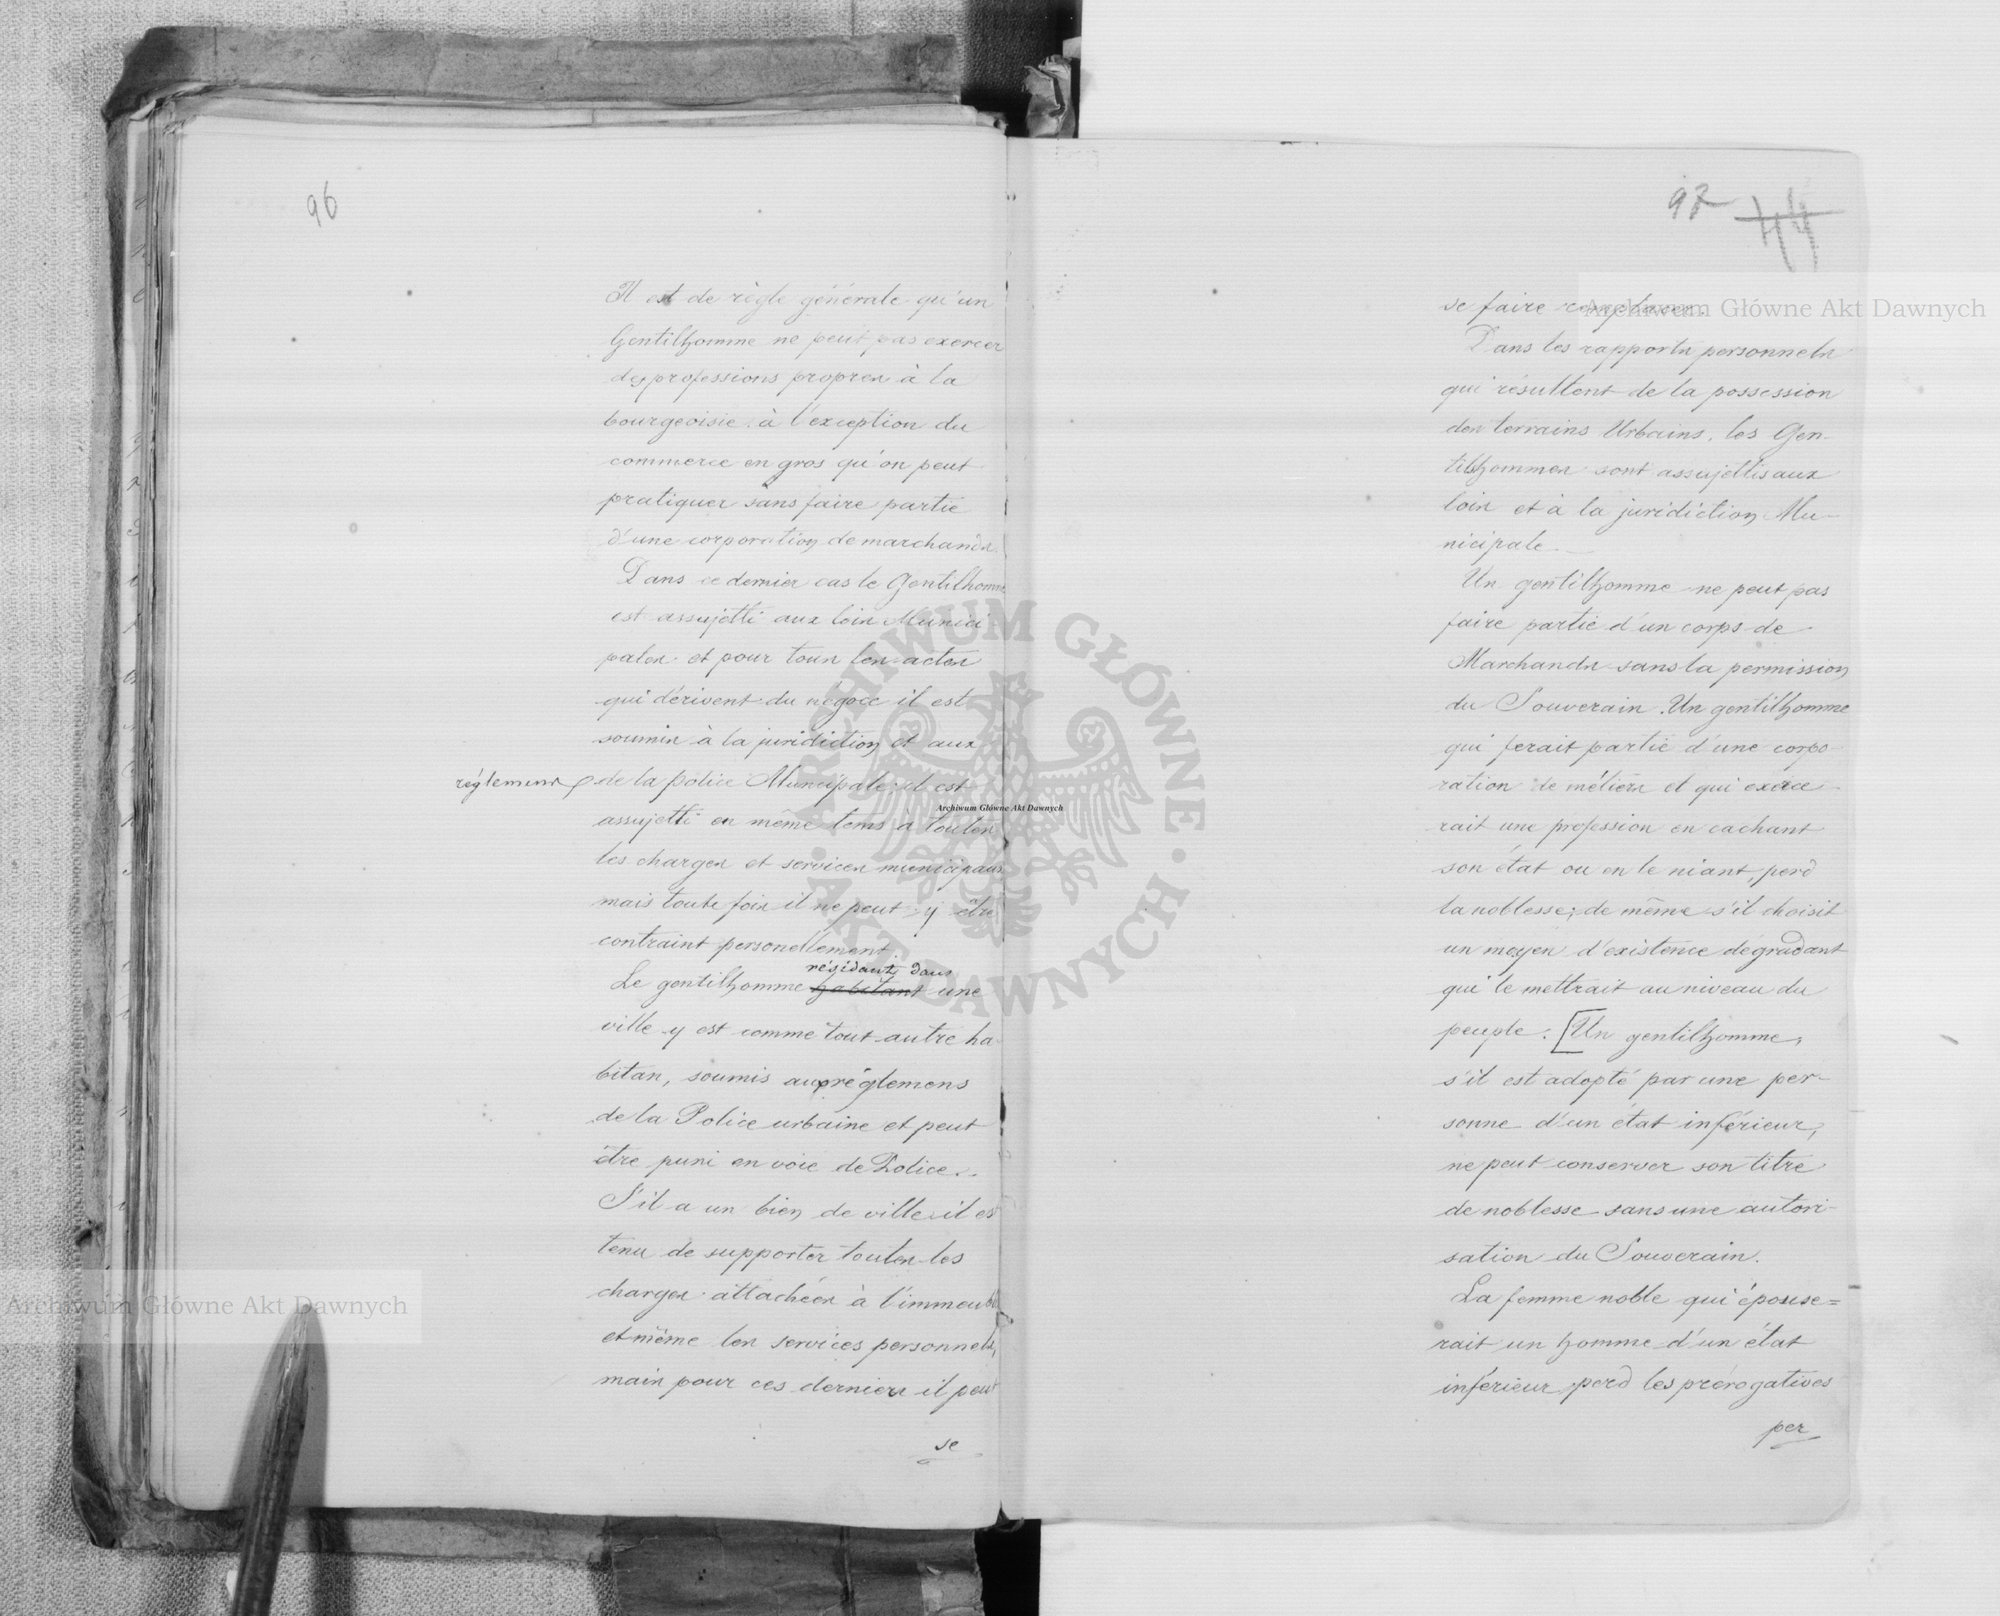 96
Il est de règle générale qu'un
Gentilhomme ne peut pas exercer
des professions propres à la
bourgeoisie à l'exception du
commerce en gros qu'on peut
pratiquer sans faire partie
d'une corporation de marchands.
Dans ce dernier cas le Gentilhomme
est assujetti aux loix Munici-
pales et pour tous les actes
qui dérivent du négoce il est
soumis à la juridiction et aux
réglemens de la police Municipale; il est
assujetti en même tems à toutes
les charges et services municipaux
mais toute fois il ne peut y être
contraint personellement.
résidant dans
Le gentilhomme habitant une
ville y est comme tout autre ha-
bitan, soumis aux réglemens
de la Police urbaine et peut
être puni en voie de Police.
S'il a un bien de ville il est
tenu de supporter toutes les
charges attachées à l'immeuble
et même les services personnels,
mais pour ces derniers il peut
se
97 44
se faire remplacer.
Dans les rapports personnels
qui résultent de la possession
des terrains Urbains, les Gen-
tilhommes sont assujettis aux
loix et à la juridiction Mu-
nicipale.
Un gentilhomme ne peut pas
faire partie d'un corps de
Marchands sans la permission
du Souverain. Un gentilhomme
qui ferait partie d'une corpo-
ration de métiers et qui exerce-
rait une profession en cachant
son état ou en le niant, perd
la noblesse; de même s'il choisit
un moyen d'existence dégradant
qui le mettrait au niveau du
peuple. [Un gentilhomme,
s'il est adopté par une per-
sonne d'un état inférieur,
ne peut conserver son titre
de noblesse sans une autori-
sation du Souverain.
La femme noble qui épouse=
rait un homme d'un état
inférieur perd les prérogatives
per
Archiwum Główne Akt Dawnych
Archiwum Główne Akt Dawnych
Archiwum Główne Akt Dawnych
ARCHIWUM GŁÓWNE AKT DAWNYCH